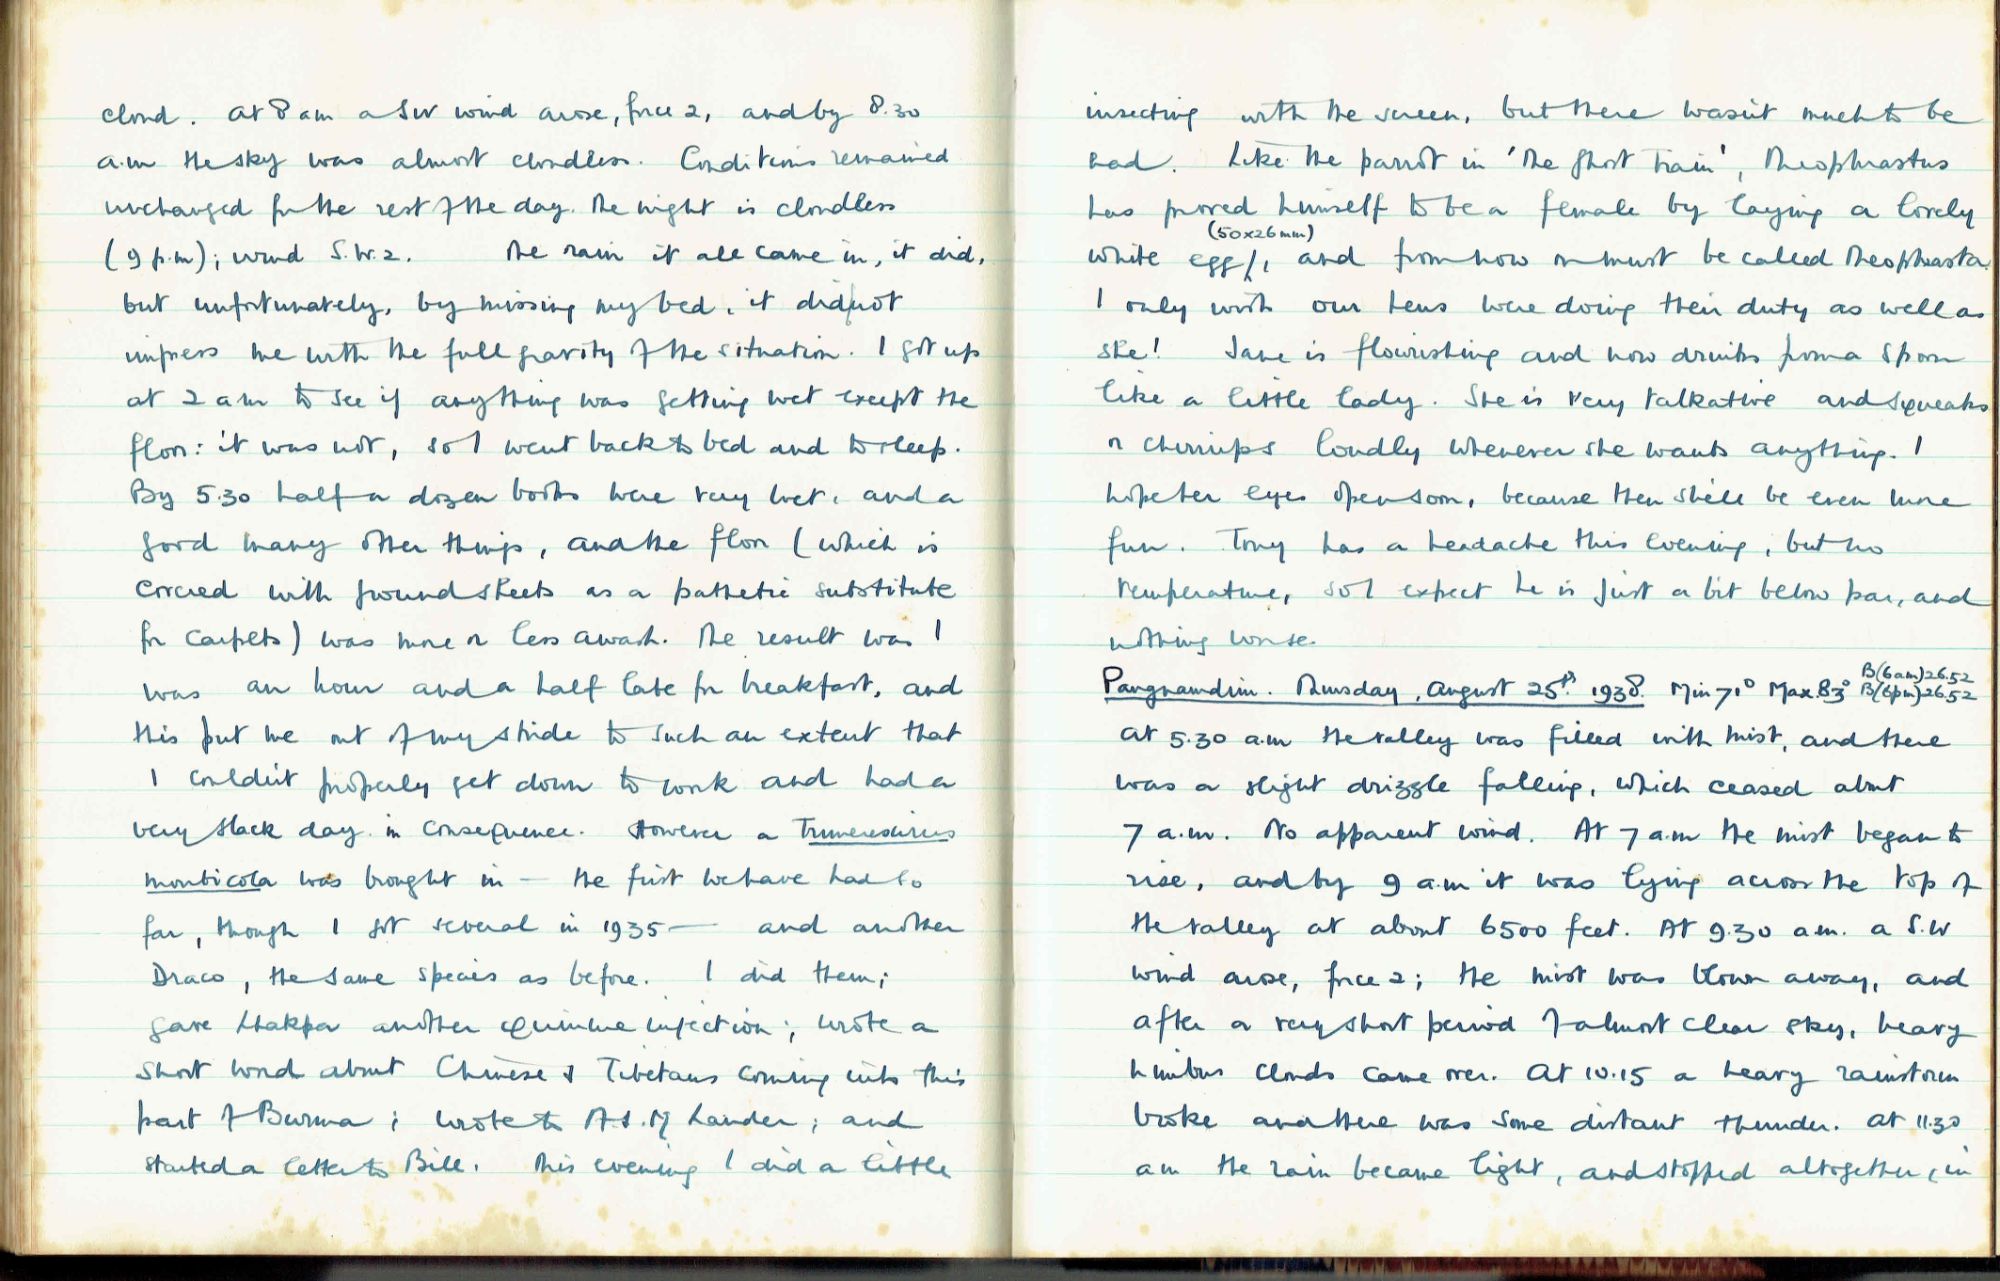 cloud. At 8 am a SW wind arose, force 2, and by 8.30
a.m the sky was almost cloudless. Conditions remained
unchanged for the rest of the day. The night is cloudless
(9 p.m); wind S.W.2. The rain it all came in, it did,
but unfortunately, by missing my bed, it did not
impress me with the full gravity of the situation. I got up
at 2 am to see if anything was getting wet except the
floor: it was not, so I went back to bed and to sleep.
By 5.30 half a dozen books were very wet, and a
good many other things, and the floor (which is
covered with ground sheets as a pathetic substitute
for carpets) was more or less awash. The result was I
was an hour and a half late for breakfast, and
this put me out of my stride to such an extent that
I couldn't properly get down to work and had a
very slack day in consequence. However a Trimeresurus
monticola was brought in – the first we have had so
far, though I got several in 1935 – and another
Draco, the same species as before. I did them;
gave Lhakpa another quinine injection; wrote a
short word about Chinese & Tibetans coming into this
part of Burma; wrote to Lander; and
started a letter to Bill. This evening I did a little
insecting with the screen, but there wasn't much to be
had. Like the parrot in 'The Ghost Train', Theophrastus
has proved himself to be a female by laying a lovely
(50x26mm)
white egg, and from now on must be called Theophrasta.
I only wish our hens were doing their duty as well as
she! Jane is flourishing and now drinks from a spoon
like a little lady. She is very talkative and squeaks
or chirrups loudly whenever she wants anything. I
hope her eyes open soon, because then she'll be even more
fun. Tony has a headache this evening, but no
temperature, so I expect he is just a bit below par, and
nothing worse.
Pangnamdim. Thursday, August 25th. 1938. Min 71° Max. 83° B(6am)26.52
B(6pm)26.52
At 5.30 a.m the valley was filled with mist, and there
was a slight drizzle falling, which ceased about
7 a.m. No apparent wind. At 7 a.m the mist began to
rise, and by 9 a.m it was lying across the top of
the valley at about 6500 feet. At 9.30 a.m. a S.W
wind arose, force 2; the mist was blown away, and
after a very short period of almost clear sky, heavy
nimbus clouds came over. At 10.15 a heavy rainstorm
broke and there was some distant thunder. At 11.30
am the rain became light, and stopped altogether in